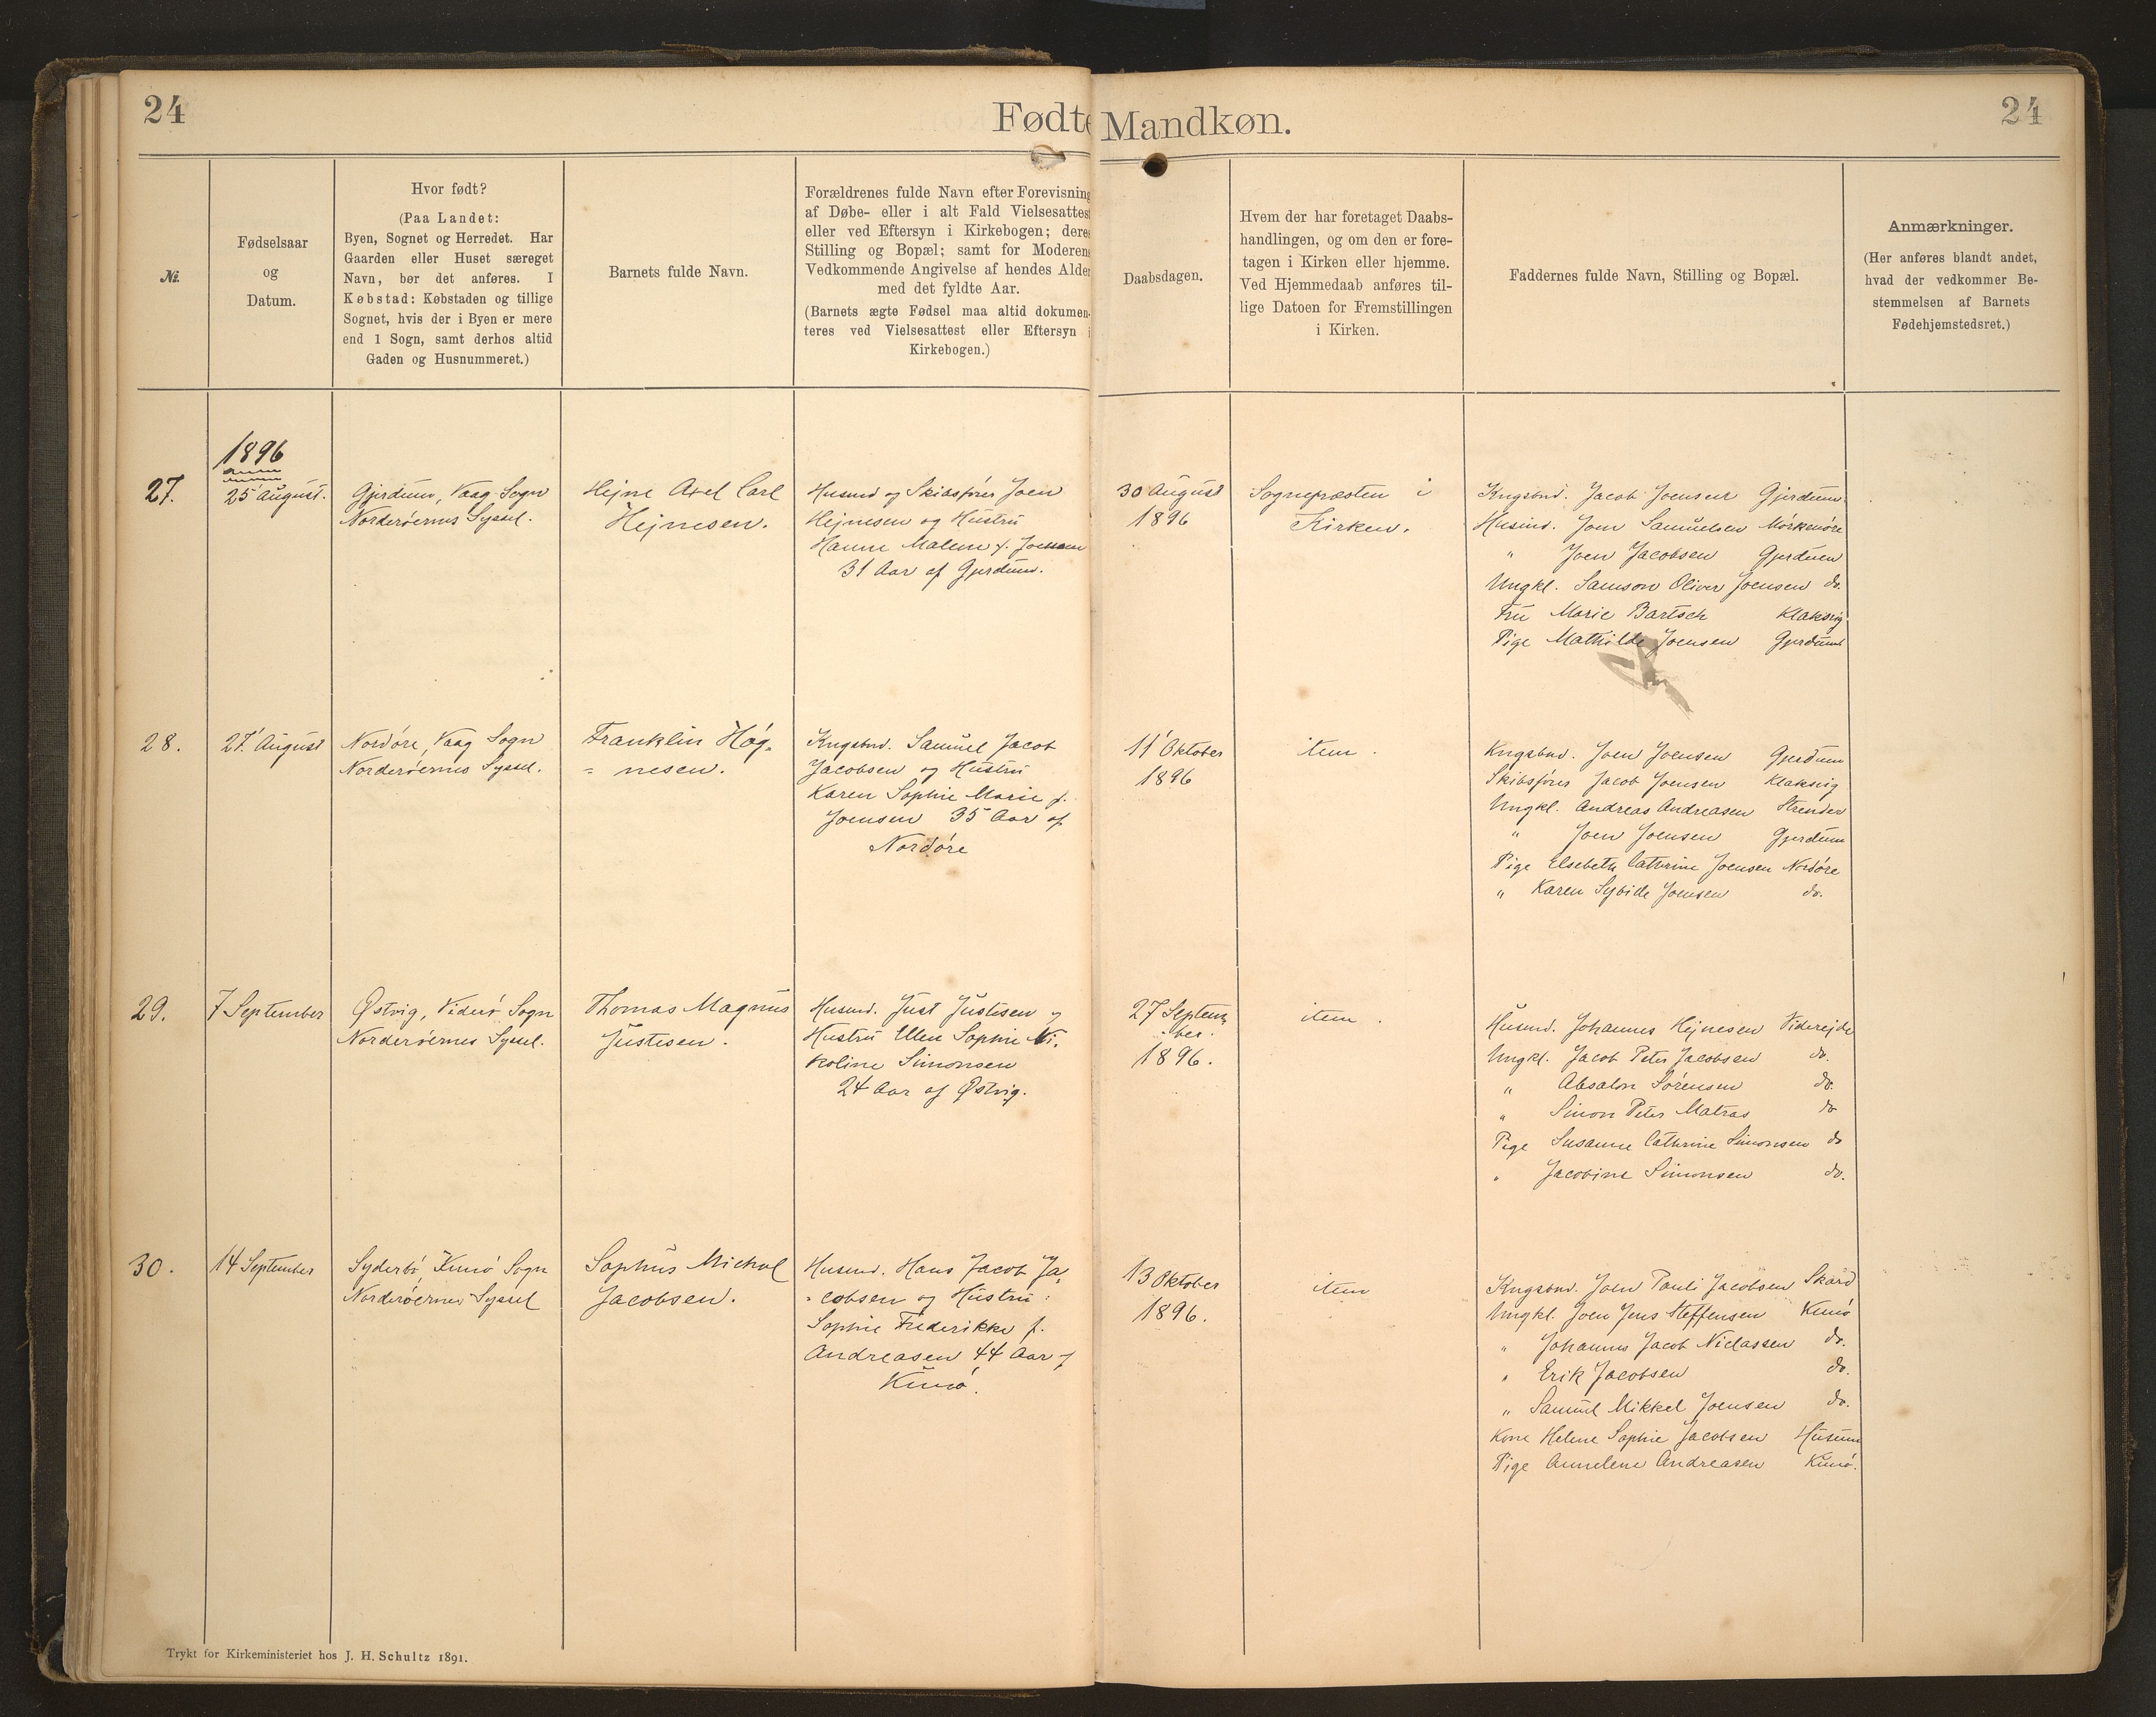 24
Fødte Mandkøn.
24
№
Fødselsaar
og
Datum.
Hvor født?
(Paa Landet:
Byen, Sognet og Herredet. Har
Gaarden eller Huset særeget
Navn, bør det anføres. I
Købstad: Købstaden og tillige
Sognet, hvis der i Byen er mere
end 1 Sogn, samt derhos altid
Gaden og Husnummeret.)
Barnets fulde Navn.
Forældrenes fulde Navn efter Forevisning
af Døbe- eller i alt Fald Vielsesattest
eller ved Eftersyn i Kirkebogen; deres
Stilling og Bopæl; samt for Moderens
Vedkommende Angivelse af hendes Alder
med det fyldte Aar.
(Barnets ægte Fødsel maa altid dokumen-
teres ved Vielsesattest eller Eftersyn i
Kirkebogen.)
Daabsdagen.
Hvem der har foretaget Daabs-
handlingen, og om den er fore-
tagen i Kirken eller hjemme.
Ved Hjemmedaab anføres til-
lige Datoen for Fremstillingen
i Kirken.
Faddernes fulde Navn, Stilling og Bopæl.
Anmærkninger.
(Her anføres blandt andet,
hvad der vedkommer Be-
stemmelsen af Barnets
Fødehjemstedsret.)
1896
27.
25 August.
Gjerdum, Vaag Sogn
Norderöernes Syssel.
Hejne Axel Carl
Hejnesen.
Husmd og Skibsfører Joen
Hejnesen og Hustru
Hanne Malene f. Joensen
31 Aar af Gjerdum.
30 August
1896
Sognepræsten i
Kirken.
Kngsbnd. Jacob Joensen Gjerdum
Husmd. Joen Samuelsen Mörkenöre
" Joen Jacobsen Gjerdum
Ungkl. Samson Oliver Joensen do.
Fru Marie Bartsch Klaksvig
Pige Mathilde Joensen Gjerdum
28.
27 August
Nordöre, Vaag Sogn
Norderöernes Syssel.
Franklin Høg-
= nesen.
Kngsbnd. Samuel Jacob
Jacobsen og Hustru
Karen Sophie Marie f.
Joensen 35 Aar af
Nordöre
11 Oktober
1896
item.
Kngsbnd. Joen Joensen Gjerdum
Skibsfører Jacob Joensen Klaksvig
Ungkl. Andreas Andreasen Strender
" Joen Joensen Gjerdum
Pige Elsebeth Cathrine Joensen Nordöre
" Karen Sybille Joensen do.
29.
7 September
Østvig, Viderö Sogn
Norderöernes Syssel.
Thomas Magnus
Justesen.
Husmd. Just Justesen og
Hustru Ellen Sophie Ni-
koline Simonsen
24 Aar af Østvig.
27 Septem-
ber.
1896.
item.
Husmd. Johannes Hejnesen Viderejde
Ungkl. Jacob Peter Jacobsen do.
" Absalon Sörensen do.
" Simon Peter Matras do
Pige Susanne Cathrine Simonsen do
" Jacobine Simonsen do.
30.
14 September
Syderbö, Kunö Sogn
Norderöernes Syssel
Sophus Michal
Jacobsen.
Husmd. Hans Jacob Ja-
cobsen og Hustru
Sophie Frederikke f.
Andreasen 44 Aar f
Kunö.
13 Oktober
1896.
item
Kngsbnd. John Pauli Jacobsen Skard
Ungkl. Joen Jens Steffensen Kunö
" Johannes Jacob Niclassen do.
" Erik Jacobsen do.
" Samuel Mikkel Joensen do.
Kone Helene Sophie Jacobsen Husum
Pige Annelene Andreasen Kunö.
Trykt for Kirkeministeriet hos J. H. Schultz 1891.